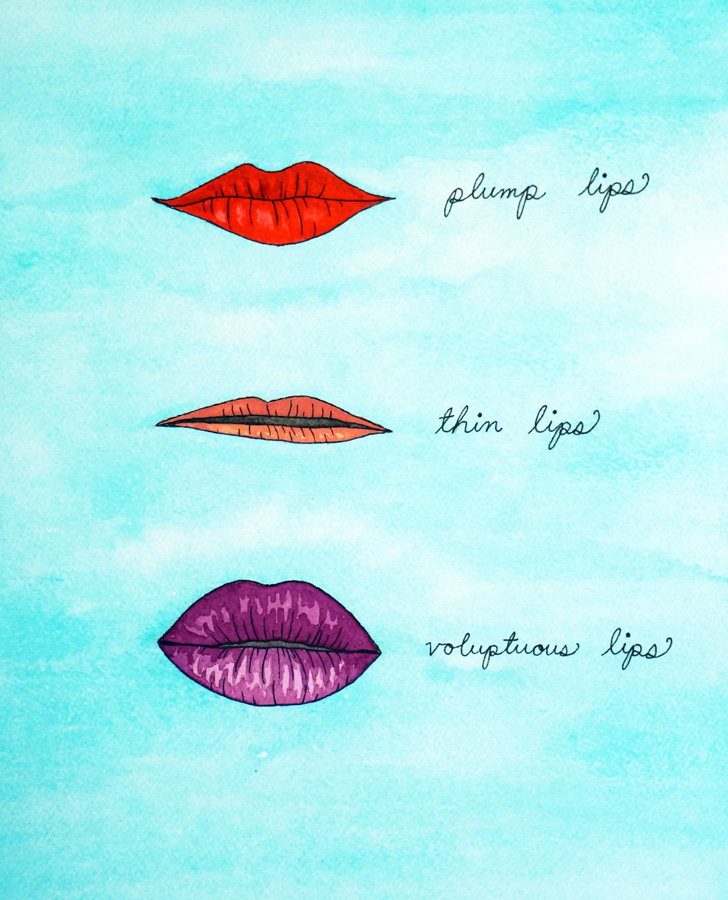 plump lips
thin lips
voluptuous lips